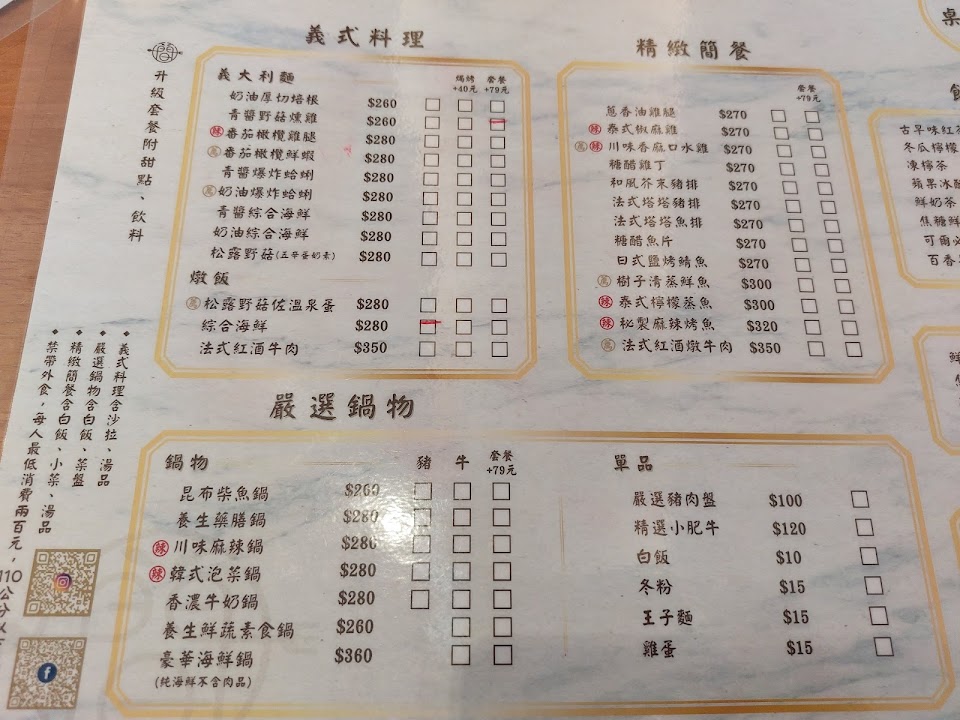 義式料理
義大利麵 焗烤+40元 套餐+79元
奶油厚切培根 $260
青醬野菇燻雞 $260
辣 番茄橄欖雞腿 $280
薦 番茄橄欖鮮蝦 $280
青醬爆炸蛤蜊 $280
薦 奶油爆炸蛤蜊 $280
青醬綜合海鮮 $280
奶油綜合海鮮 $280
松露野菇(五辛蛋奶素) $280
燉飯
薦 松露野菇佐溫泉蛋 $280
綜合海鮮 $280
法式紅酒牛肉 $350
精緻簡餐
套餐+79元
蔥香油雞腿 $270
辣 泰式椒麻雞 $270
薦 辣 川味香麻口水雞 $270
糖醋雞丁 $270
和風芥末豬排 $270
法式塔塔豬排 $270
法式塔塔魚排 $270
糖醋魚片 $270
日式鹽烤鯖魚 $270
薦 樹子清蒸鮮魚 $300
辣 泰式檸檬蒸魚 $300
辣 秘製麻辣烤魚 $320
薦 法式紅酒燉牛肉 $350
嚴選鍋物
鍋物 豬 牛 套餐+79元
昆布柴魚鍋 $260
養生藥膳鍋 $280
辣 川味麻辣鍋 $280
辣 韓式泡菜鍋 $280
香濃牛奶鍋 $280
養生鮮蔬素食鍋 $260
豪華海鮮鍋 $360
(純海鮮不含肉品)
單品
嚴選豬肉盤 $100
精選小肥牛 $120
白飯 $10
冬粉 $15
王子麵 $15
雞蛋 $15
升級套餐附甜點、飲料
◆義式料理含沙拉、湯品
◆嚴選鍋物含白飯、菜盤
◆精緻簡餐含白飯、小菜、湯品
◆禁帶外食，每人最低消費兩百元，110公分以下
桌
古早味紅
冬瓜檸檬
凍檸茶
蘋果冰
鮮奶茶
焦糖鮮
可爾必
百香
鮮